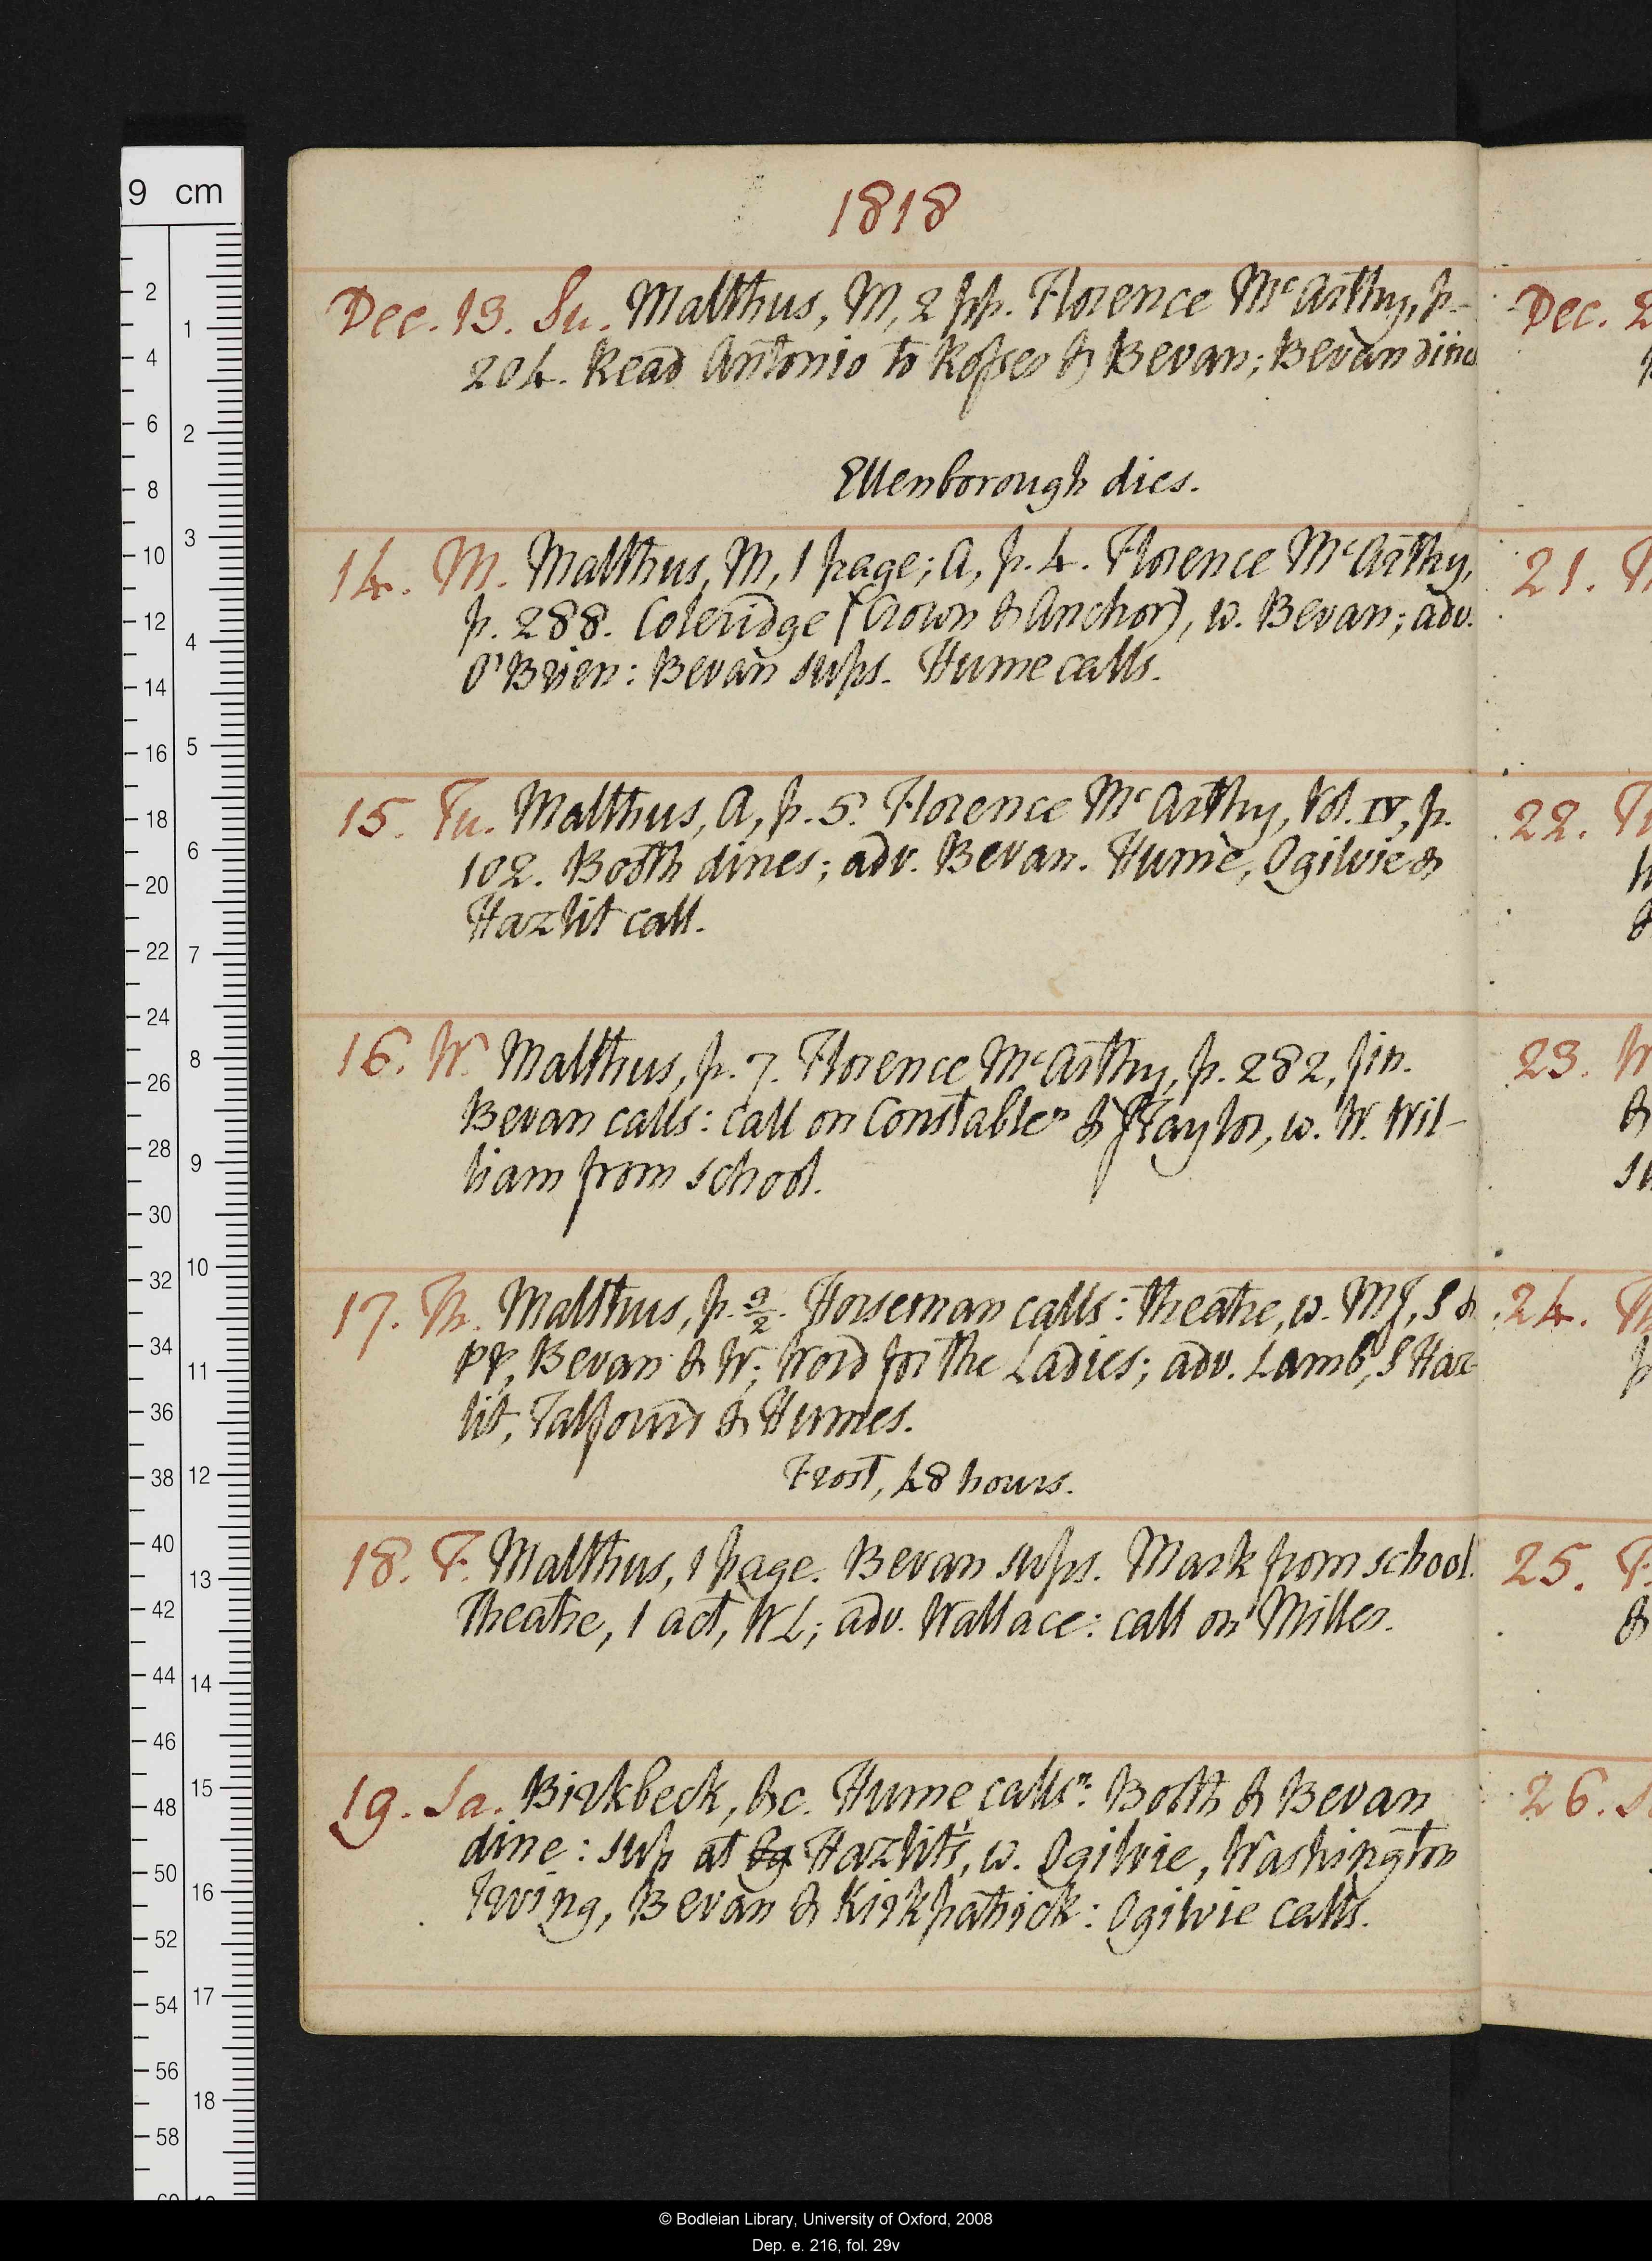 1818
Dec. 13. Su. Malthus, M, 2 pp. Florence McArthy, p.
204. Read Antonio to Rosser & Bevan; Bevan dines
Ellenborough dies.
14. M. Malthus, M, 1 page; A, p. 4. Florence McArthy,
p. 288. Coleridge (Crown & Anchor), w. Bevan; adv.
O'Brien: Bevan sups. Hume calls.
15. Tu. Malthus, A, p. 5. Florence McArthy, Vol. IV, p.
102. Booth dines; adv. Bevan. Hume, Ogilvie &
Hazlit call.
16. W. Malthus, p. 7. Florence McArthy, p. 282, fin.
Bevan calls: call on Constable n & J Taylor, w. W. Wil-
liam from school.
17. Th. Malthus, p. 9/2. Horseman calls: theatre, w. MJ, S &
PP, Bevan & W; Word for the Ladies; adv. Lamb, S Haz-
lit, Talfourd & Humes.
Frost, 48 hours.
18. F. Malthus, 1 page. Bevan sups. Mark from school.
Theatre, 1 act, WL; adv. Wallace: call on Miller.
19. Sa. Birkbeck, &c. Hume calls n: Booth & Bevan
dine: sup at Og Hazlit's, w. Ogilvie, Washington
Irving, Bevan & Kirkpatrick: Ogilvie calls.
Dec. 2
21.
22.
23. W
&
24. Th
25. F.
&
26. S
9 cm
2
4
6
8
10
12
14
16
18
20
22
24
26
28
30
32
34
36
38
40
42
44
46
48
50
52
54
56
58
1
2
3
4
5
6
7
8
9
10
11
12
13
14
15
16
17
18
© Bodleian Library, University of Oxford, 2008
Dep. e. 216, fol. 29v